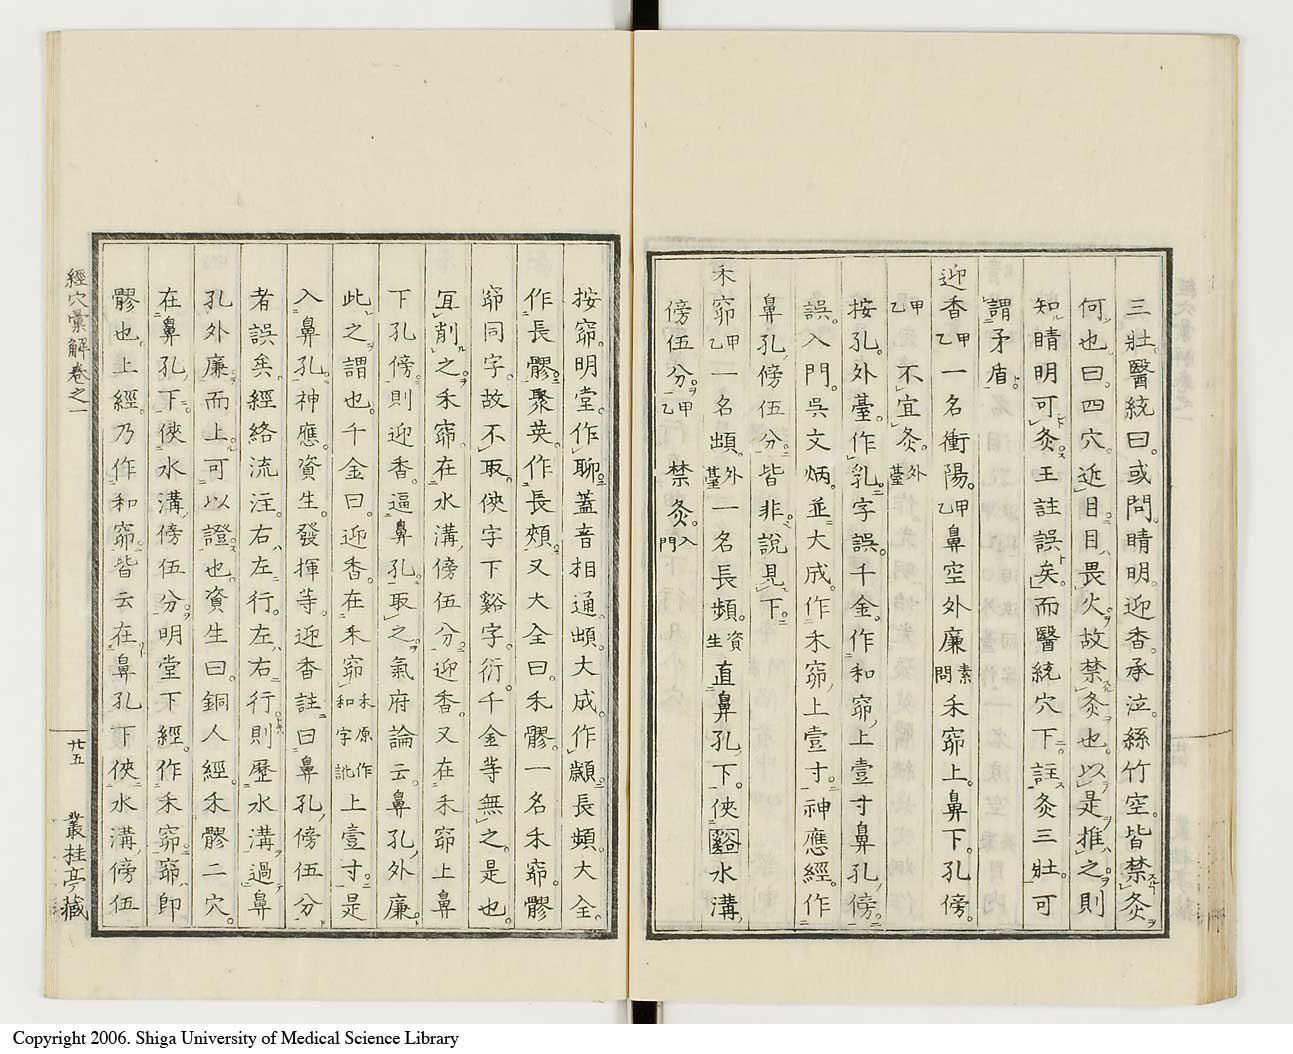 三壯醫統曰或問睛明迎香承泣絲竹空皆禁灸
何也曰四穴近目目畏火故禁灸也以是推之則
知睛明可灸王註誤矣而醫統穴下註灸三壯可
謂矛盾
迎香甲乙一名衝陽甲乙鼻空外廉素問禾窌上鼻下孔傍
甲乙不宜灸外臺
按孔外臺作乳字誤千金作和窌上壹寸鼻孔傍
誤入門吳文炳並大成作禾窌上壹寸神應經作
鼻孔傍伍分皆非說見下
禾窌甲乙一名䪼外臺一名長頻資生直鼻孔下俠谿水溝
傍伍分甲乙禁灸入門
按窌明堂作聊蓋音相通䪼大成作顪長頻大全
作長髎聚英作長頰又大全曰禾髎一名禾窌髎
窌同字故不取俠字下谿字衍千金等無之是也
宜削之禾窌在水溝傍伍分迎香又在禾窌上鼻
下孔傍則迎香逼鼻孔取之氣府論云鼻孔外廉
此之謂也千金曰迎香在禾窌禾原作和字訛上壹寸是
入鼻孔神應資生發揮等迎香註曰鼻孔傍伍分
者誤矣經絡流注右左行左右行則歷水溝過鼻
孔外廉而上可以證也資生曰銅人經禾髎二穴
在鼻孔下俠水溝傍伍分明堂下經作禾窌窌即
髎也上經乃作和窌皆云在鼻孔下俠水溝傍伍
經穴彙解卷之一
廿五
叢桂亭藏
Copyright 2006. Shiga University of Medical Science Library